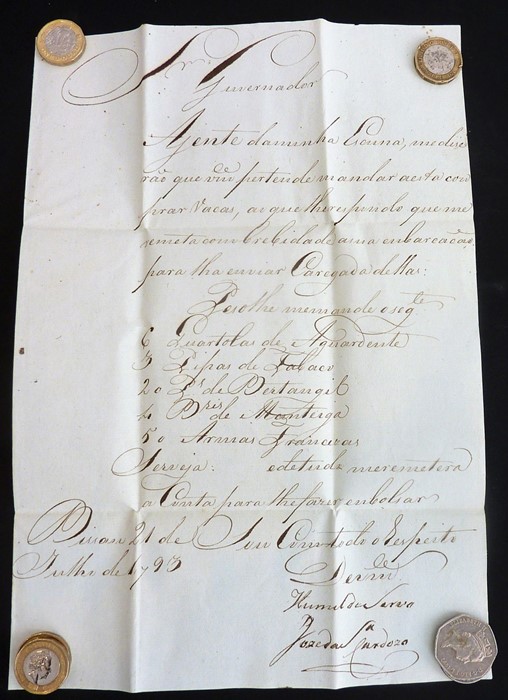 Snr
Guvernador
A gente da minha Escuna, me dise
rão que vm pertende mandar a esta com
prar Vacas, ao que lhe respondo que me
remeta com brebidade a sua enbarcação
para lha enviar Caregada de llas:
Peso lhe me mande o segte
6 Quartolas de Aguardente
3 Pipas de Tabaco
20 Ps de Bertangil
4 Bris de Manteiga
50 Armas Francezas
Serveja: e de tudo me remetera
a Conta para lhe fazer enbolsar
Bisau 21 de Sou Com todo o Respeito
Julho de 1793
De vm
Humilde Servo
Joze da Sa Cardozo